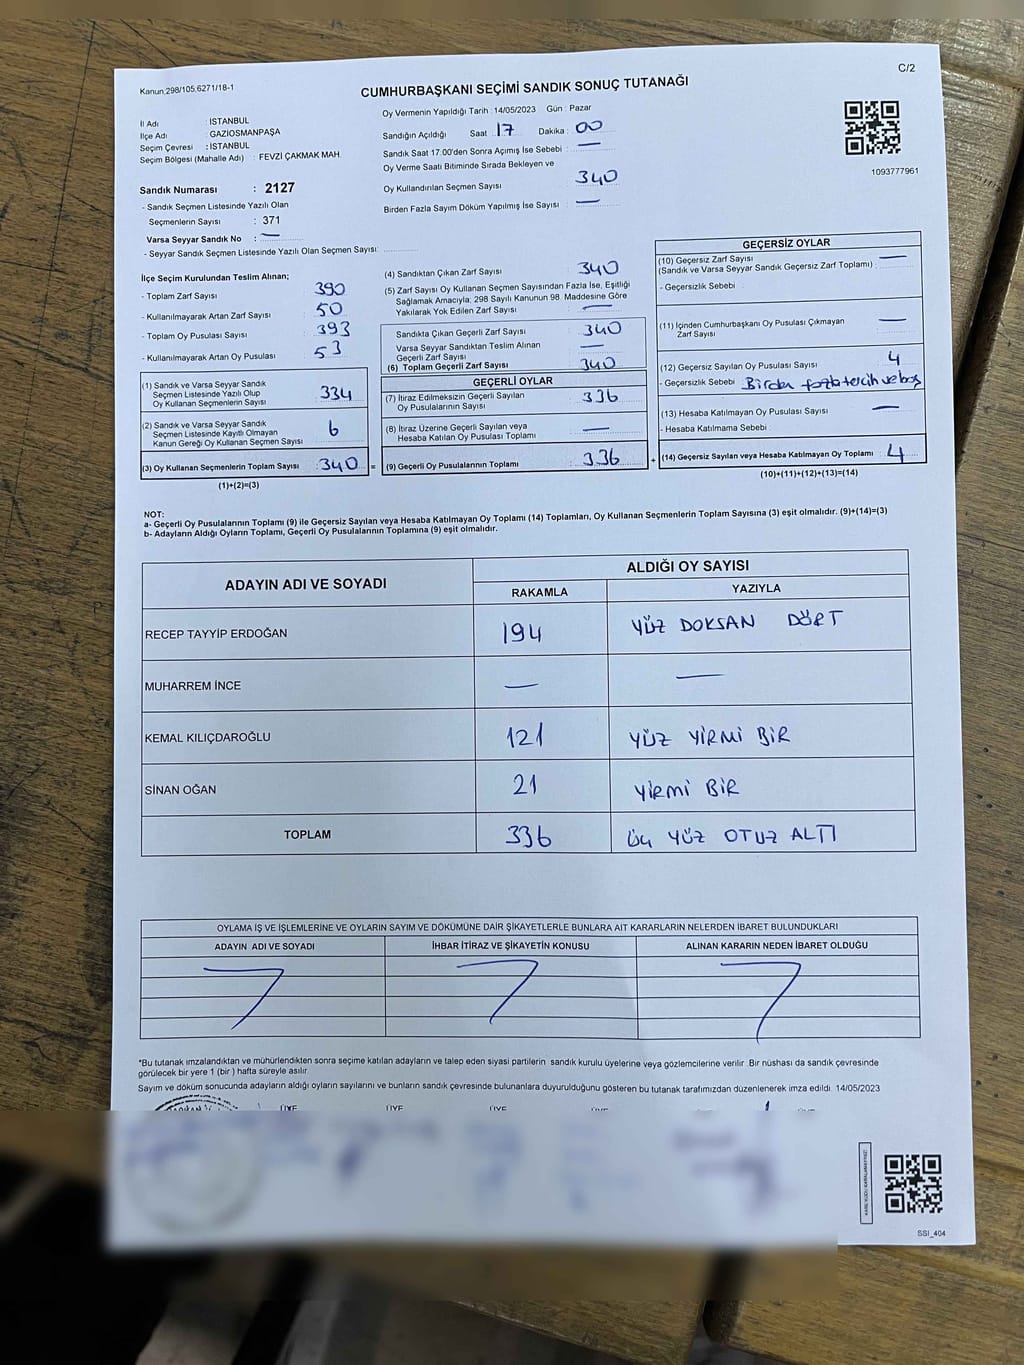 Kanun:298/105;6271/18-1
C/2
CUMHURBAŞKANI SEÇİMİ SANDIK SONUÇ TUTANAĞI
İl Adı : İSTANBUL
İlçe Adı : GAZİOSMANPAŞA
Seçim Çevresi : İSTANBUL
Seçim Bölgesi (Mahalle Adı) : FEVZİ ÇAKMAK MAH.
Sandık Numarası : 2127
- Sandık Seçmen Listesinde Yazılı Olan
Seçmenlerin Sayısı : 371
Varsa Seyyar Sandık No : —
- Seyyar Sandık Seçmen Listesinde Yazılı Olan Seçmen Sayısı:
Oy Vermenin Yapıldığı Tarih : 14/05/2023 Gün : Pazar
Sandığın Açıldığı Saat : 17 Dakika : 00
Sandık Saat 17.00'den Sonra Açımış İse Sebebi : —
Oy Verme Saati Bitiminde Sırada Bekleyen ve
Oy Kullandırılan Seçmen Sayısı : 340
Birden Fazla Sayım Döküm Yapılmış İse Sayısı : —
1093777961
İlçe Seçim Kurulundan Teslim Alınan;
- Toplam Zarf Sayısı : 390
- Kullanılmayarak Artan Zarf Sayısı : 50
- Toplam Oy Pusulası Sayısı : 393
- Kullanılmayarak Artan Oy Pusulası : 53
(1) Sandık ve Varsa Seyyar Sandık
Seçmen Listesinde Yazılı Olup
Oy Kullanan Seçmenlerin Sayısı : 334
(2) Sandık ve Varsa Seyyar Sandık
Seçmen Listesinde Kayıtlı Olmayan
Kanun Gereği Oy Kullanan Seçmen Sayısı : 6
(3) Oy Kullanan Seçmenlerin Toplam Sayısı : 340 =
(1)+(2)=(3)
(4) Sandıktan Çıkan Zarf Sayısı : 340
(5) Zarf Sayısı Oy Kullanan Seçmen Sayısından Fazla İse, Eşitliği
Sağlamak Amacıyla; 298 Sayılı Kanunun 98. Maddesine Göre
Yakılarak Yok Edilen Zarf Sayısı : —
Sandıkta Çıkan Geçerli Zarf Sayısı : 340
Varsa Seyyar Sandıktan Teslim Alınan
Geçerli Zarf Sayısı : —
(6) Toplam Geçerli Zarf Sayısı : 340
GEÇERLİ OYLAR
(7) İtiraz Edilmeksizin Geçerli Sayılan
Oy Pusulalarının Sayısı : 336
(8) İtiraz Üzerine Geçerli Sayılan veya
Hesaba Katılan Oy Pusulası Toplamı : —
(9) Geçerli Oy Pusulalarının Toplamı : 336 +
GEÇERSİZ OYLAR
(10) Geçersiz Zarf Sayısı : —
(Sandık ve Varsa Seyyar Sandık Geçersiz Zarf Toplamı) :
- Geçersizlik Sebebi :
(11) İçinden Cumhurbaşkanı Oy Pusulası Çıkmayan : —
Zarf Sayısı
(12) Geçersiz Sayılan Oy Pusulası Sayısı : 4
- Geçersizlik Sebebi : Birden fazla tercih ve boş
(13) Hesaba Katılmayan Oy Pusulası Sayısı : —
- Hesaba Katılmama Sebebi :
(14) Geçersiz Sayılan veya Hesaba Katılmayan Oy Toplamı : 4
(10)+(11)+(12)+(13)=(14)
NOT:
a- Geçerli Oy Pusulalarının Toplamı (9) ile Geçersiz Sayılan veya Hesaba Katılmayan Oy Toplamı (14) Toplamları, Oy Kullanan Seçmenlerin Toplam Sayısına (3) eşit olmalıdır. (9)+(14)=(3)
b- Adayların Aldığı Oyların Toplamı, Geçerli Oy Pusulalarının Toplamına (9) eşit olmalıdır.
ADAYIN ADI VE SOYADI ALDIĞI OY SAYISI
RAKAMLA YAZIYLA
RECEP TAYYİP ERDOĞAN 194 YÜZ DOKSAN DÖRT
MUHARREM İNCE — —
KEMAL KILIÇDAROĞLU 121 YÜZ YİRMİ BİR
SİNAN OĞAN 21 YİRMİ BİR
TOPLAM 336 ÜÇ YÜZ OTUZ ALTI
OYLAMA İŞ VE İŞLEMLERİNE VE OYLARIN SAYIM VE DÖKÜMÜNE DAİR ŞİKAYETLERLE BUNLARA AİT KARARLARIN NELERDEN İBARET BULUNDUKLARI
ADAYIN ADI VE SOYADI İHBAR İTİRAZ VE ŞİKAYETİN KONUSU ALINAN KARARIN NEDEN İBARET OLDUĞU
*Bu tutanak imzalandıktan ve mühürlendikten sonra seçime katılan adayların ve talep eden siyasi partilerin sandık kurulu üyelerine veya gözlemcilerine verilir. Bir nüshası da sandık çevresinde
görülecek bir yere 1 (bir) hafta süreyle asılır.
Sayım ve döküm sonucunda adayların aldığı oyların sayılarını ve bunların sandık çevresinde bulunanlara duyurulduğunu gösteren bu tutanak tarafımızdan düzenlenerek imza edildi. 14/05/2023
ÜYE ÜYE ÜYE ÜYE ÜYE
SSİ_404